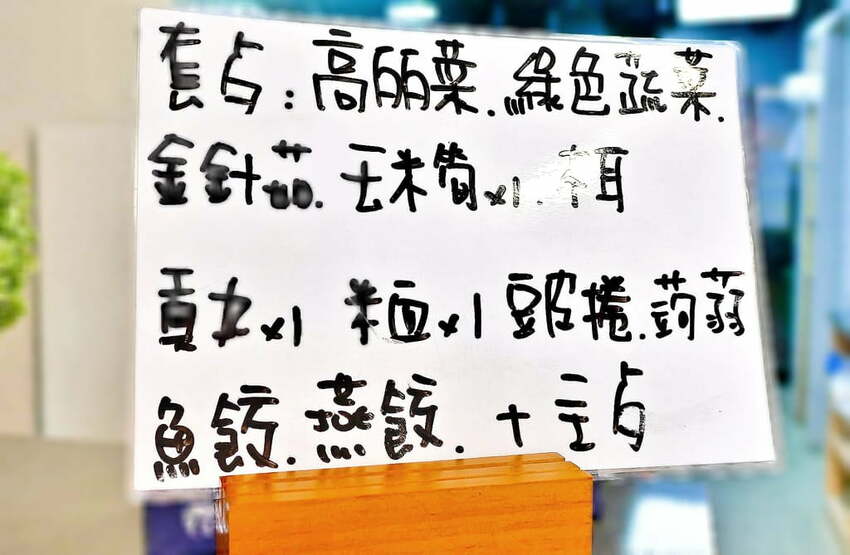 套占:高麗菜.綠色蔬菜.
金針菇.玉米筍x1.木耳
貢丸x1 米血x1 豆皮捲.蒟蒻
魚餃.燕餃.+主占